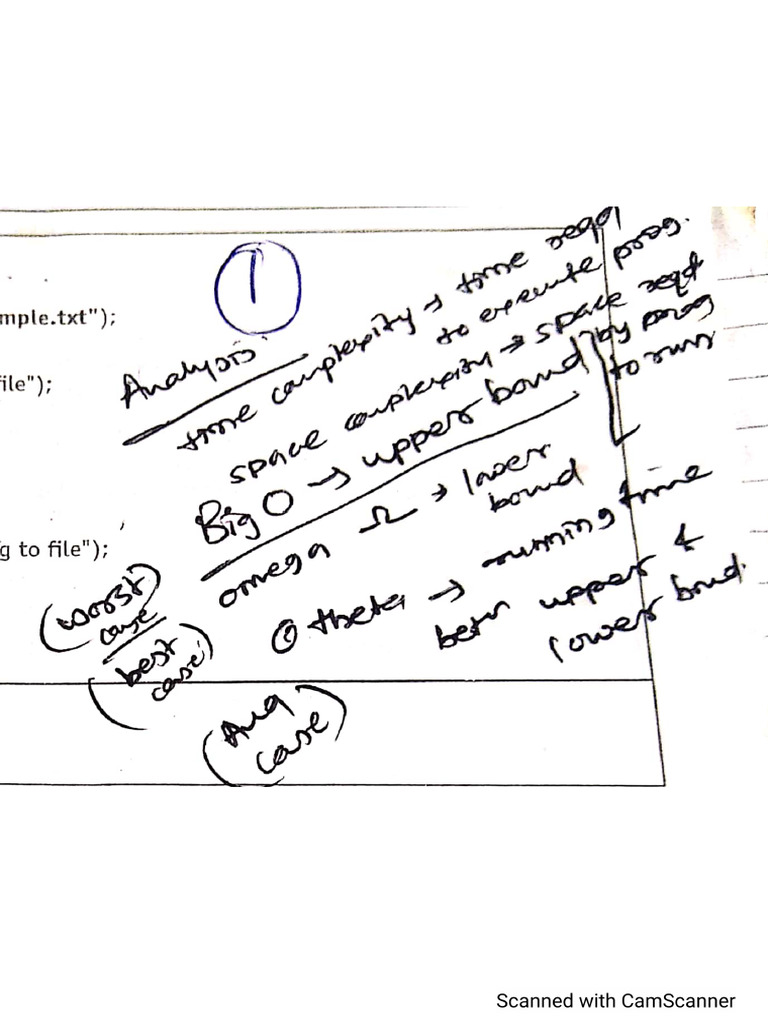 1
mple.txt");
ile");
g to file");
Analysis
time complexity → time reqd
to execute prog.
space complexity → space reqd
by prog
to run
Big O → upper bound
(worst
case)
omega Ω → lower
bound
(best
case)
θ theta → running time
betn upper &
lower bund.
(Avg
case)
Scanned with CamScanner